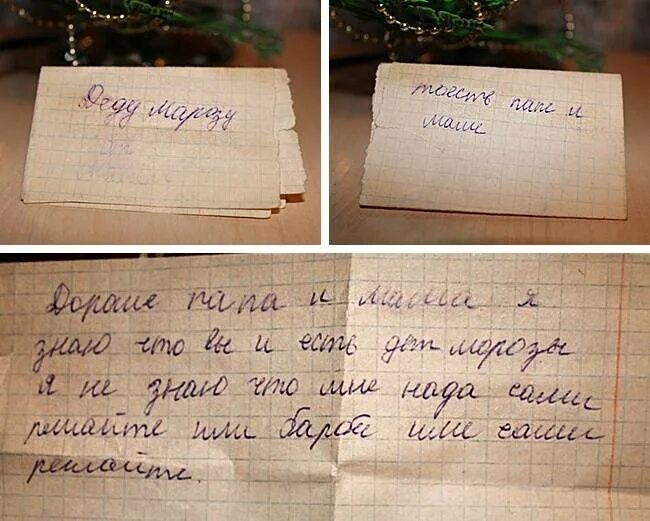 Деду Марозу
тоесть папе и
маме
Дорагие папа и мама я
знаю что вы и есть дет морозы
я не знаю что мне нада сами
решайте или барби или сами
решайте.